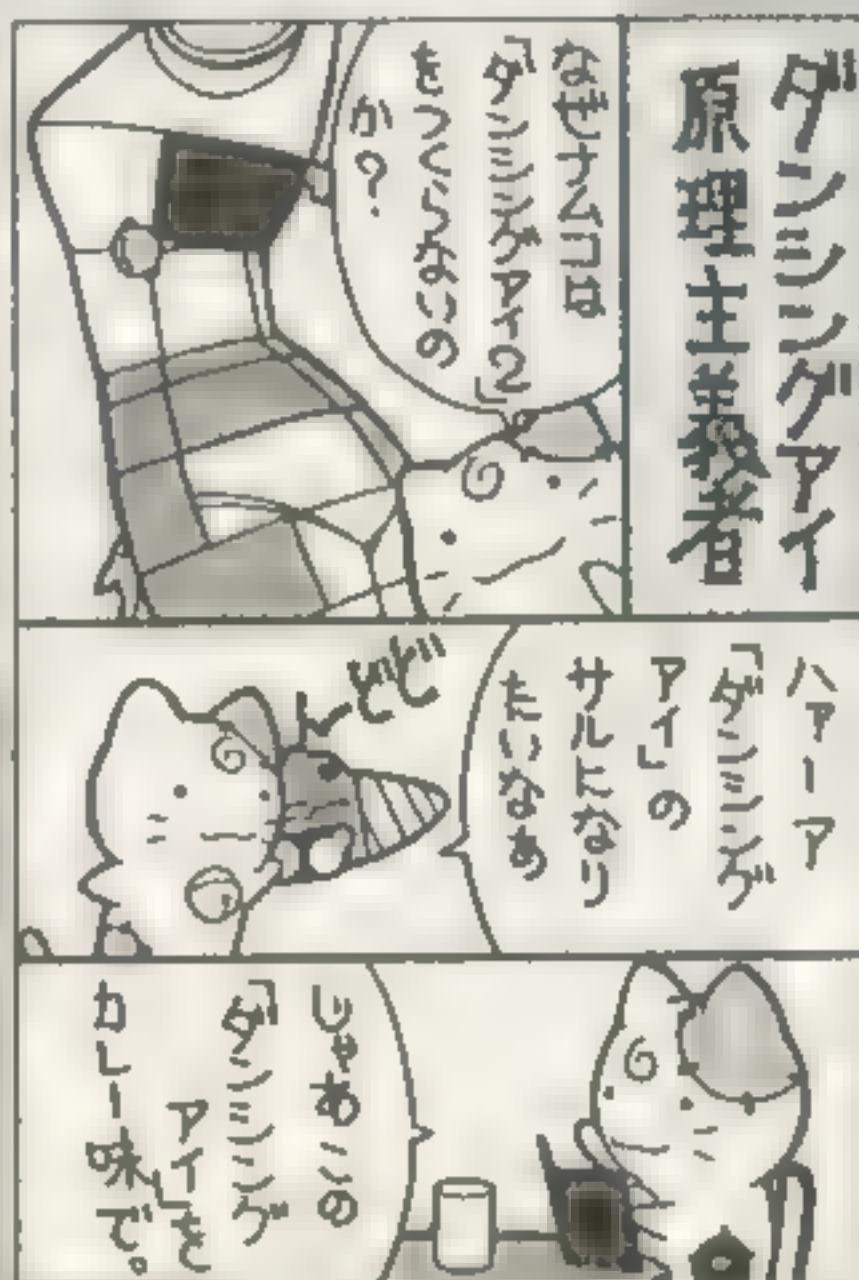 ダンシングアイ
原理主義者
なぜナムコは
「ダンシングアイ2」
をつくらないの
か?
ハァーア
「ダンシング
アイ」の
サルになり
たいなあ
どど
じゃあこの
「ダンシング
アイ」を
カレー味で。